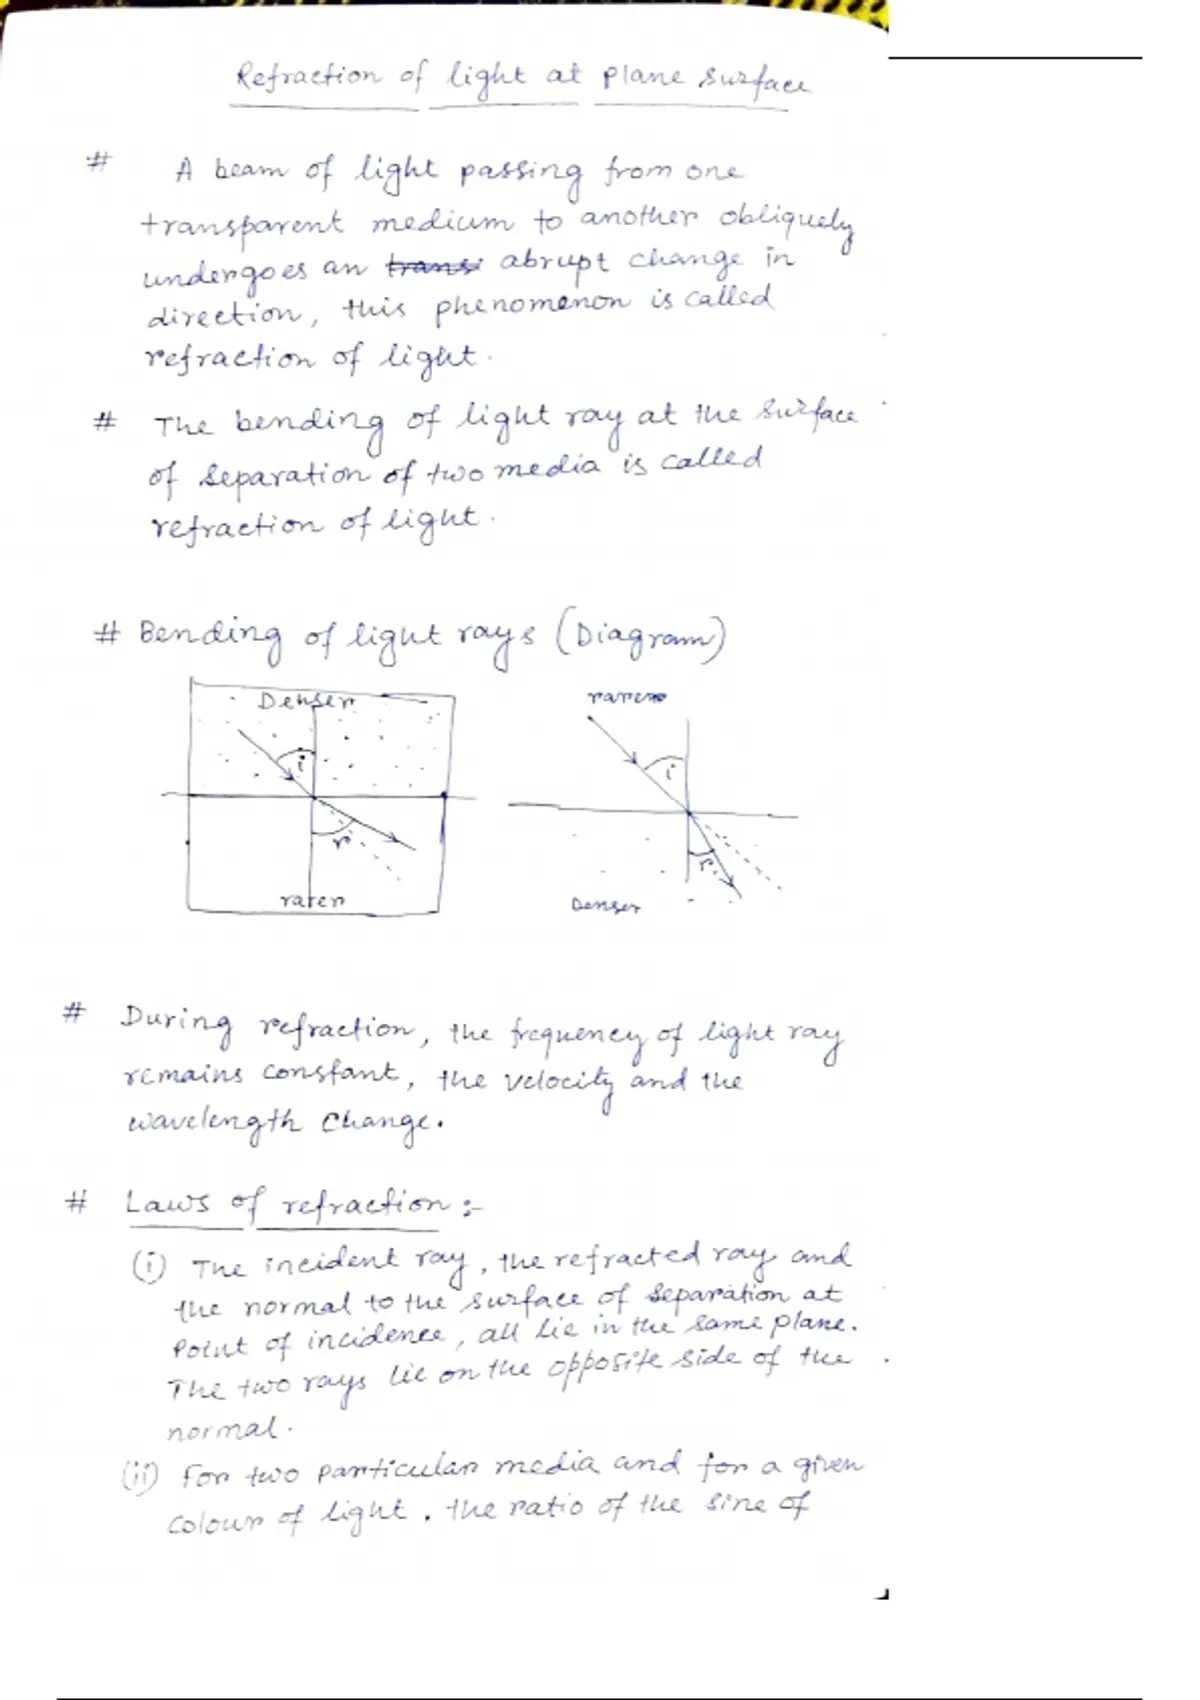 Refraction of light at plane surface
# A beam of light passing from one
transparent medium to another obliquely
undergoes an transi abrupt change in
direction, this phenomenon is called
refraction of light.
# The bending of light ray at the surface
of separation of two media is called
refraction of light.
# Bending of light rays (Diagram)
Denser
i
r
rarer
rarer
i
r
Denser
# During refraction, the frequency of light ray
remains constant, the velocity and the
wavelength change.
# Laws of refraction :-
(i) The incident ray, the refracted ray and
the normal to the surface of separation at
point of incidence, all lie in the same plane.
The two rays lie on the opposite side of the
normal.
(ii) For two particular media and for a given
colour of light, the ratio of the sine of